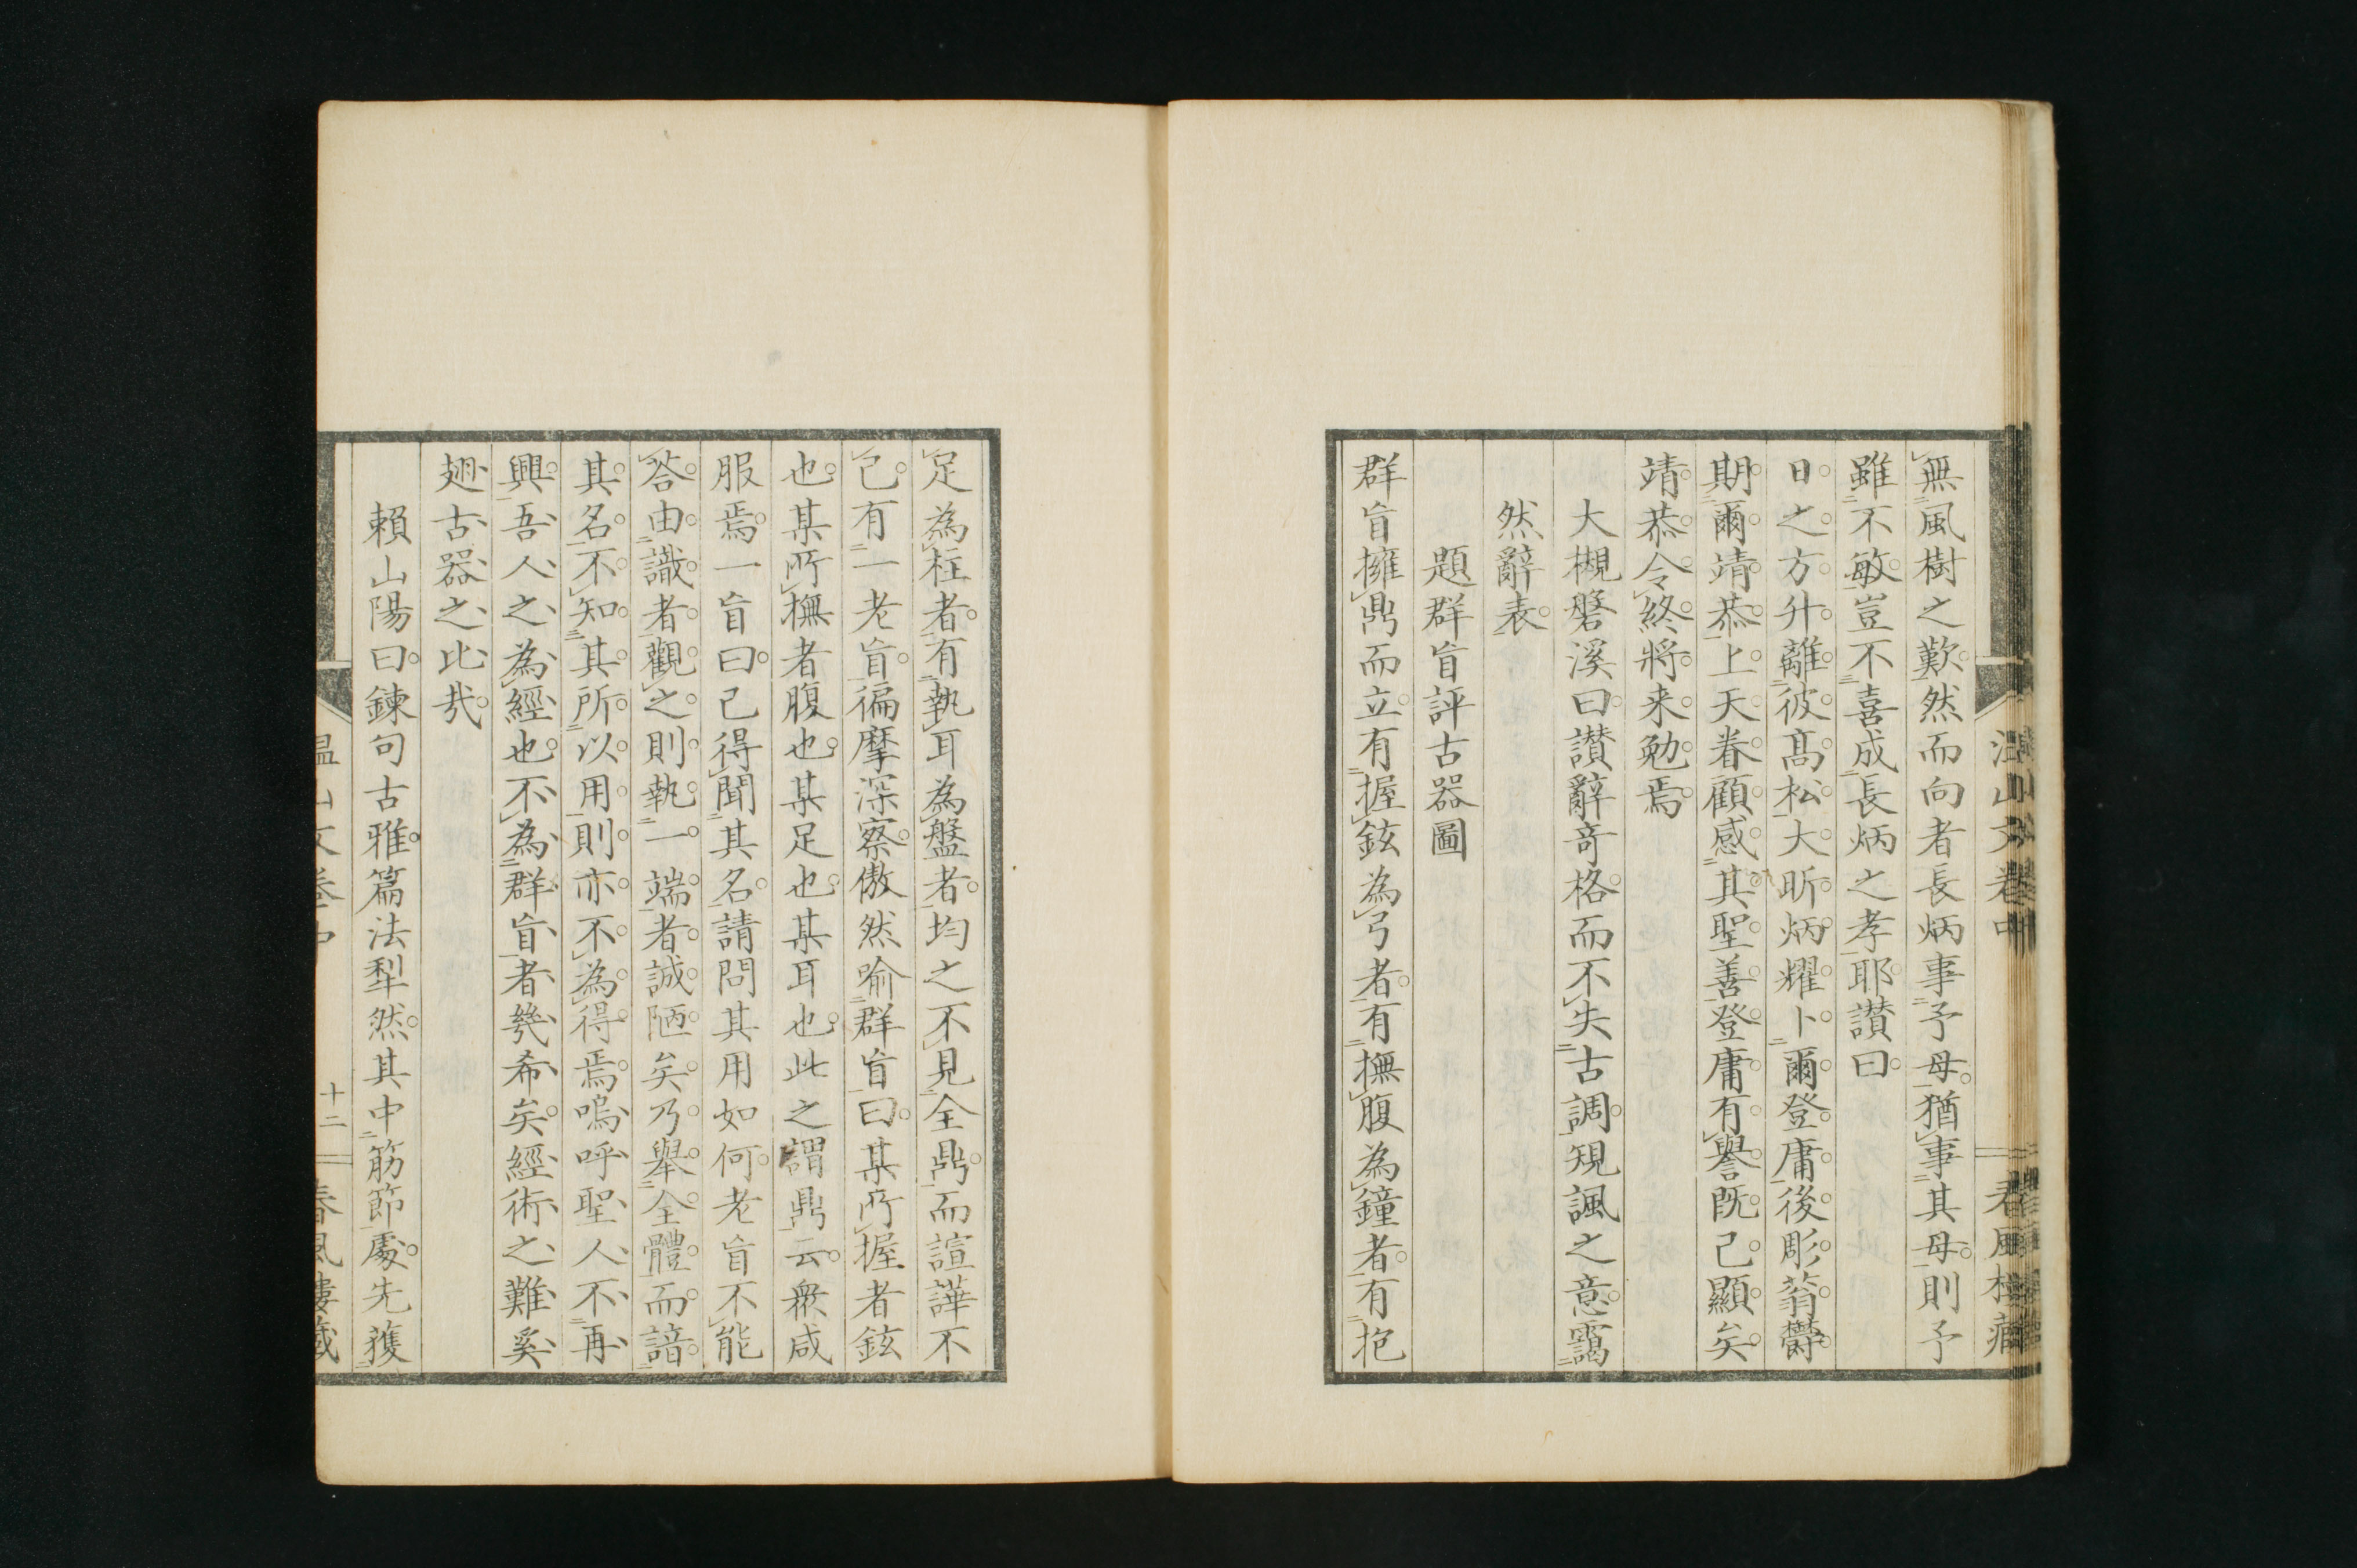 無風樹之歎然而向者長炳事予母猶事其母則予
雖不敏豈不喜成長炳之孝耶讃曰
日之方升離彼髙松大昕炳耀卜爾登庸後彫蓊欝
期爾靖恭上天眷顧感其聖善登庸有譽既已顯矣
靖恭令終將来勉焉
大槻磐溪曰讃辭奇格而不失古調規諷之意靄
然辭表
題群盲評古器圖
群盲擁鼎而立有握鉉為弓者有撫腹為鐘者有抱
足為柱者有執耳為盤者均之不見全鼎而諠譁不
已有一老盲徧摩深察傲然喻群盲曰某所握者鉉
也某所撫者腹也某足也某耳也此之謂鼎云衆咸
服焉一盲曰已得聞其名請問其用如何老盲不能
荅由識者觀之則執一端者誠陋矣乃舉全體而諳
其名不知其所以用則亦不為得焉嗚呼聖人不再
興吾人之為經也不為群盲者幾希矣經術之難奚
翅古器之比哉
賴山陽曰鍊句古雅篇法犁然其中筋節處先獲
温山文卷中
十二
春風樓藏